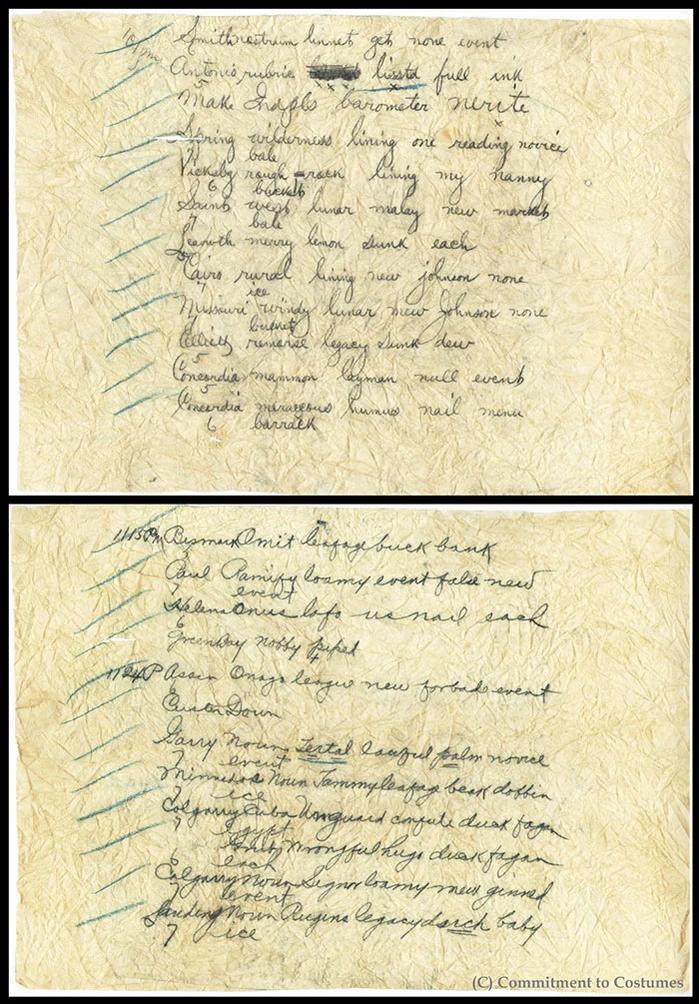 10pm
Smith nostrum linnet get none event
Antonio rubric lisstd full ink
5
Make Indpls barometer nerite
Spring wilderness lining one reading novice
7 bale
Vicksbg rough rack lining my nanny
6 bucket
Saint west lunar malay new market
7 bale
Leavwth merry lemon sunk each
5
Cairo rural lining new johnson none
7 ice
Missouri windy lunar mew Johnson none
7 bucket
Elliott removse legacy sunk dew
5
Concordia mammon layman null event
5
Concordia meraccous humus nail menu
6 barrack
1115PM Bismark Omit leafage buck bank
5
Paul Ramify loamy event false new
7 event
Helena Onus lofo us nail each
6
Green Bay nobby pipet
4
1124P Assin Onago league new forbade event
Custer Down
Garry Noun Tertal lawful palm novice
7 event
Minnedos Noun Jammy leafage beak dobbin
7 ice
Calgarry Cuba Unguard confute duck fagan
7 Egypt
Smith Wrongful hugo duck fagan
6 each
Calgarry Noun Signor loamy mew ginned
7 event
Landing Noun Rugins legacy duck baby
7 ice
(C) Commitment to Costumes